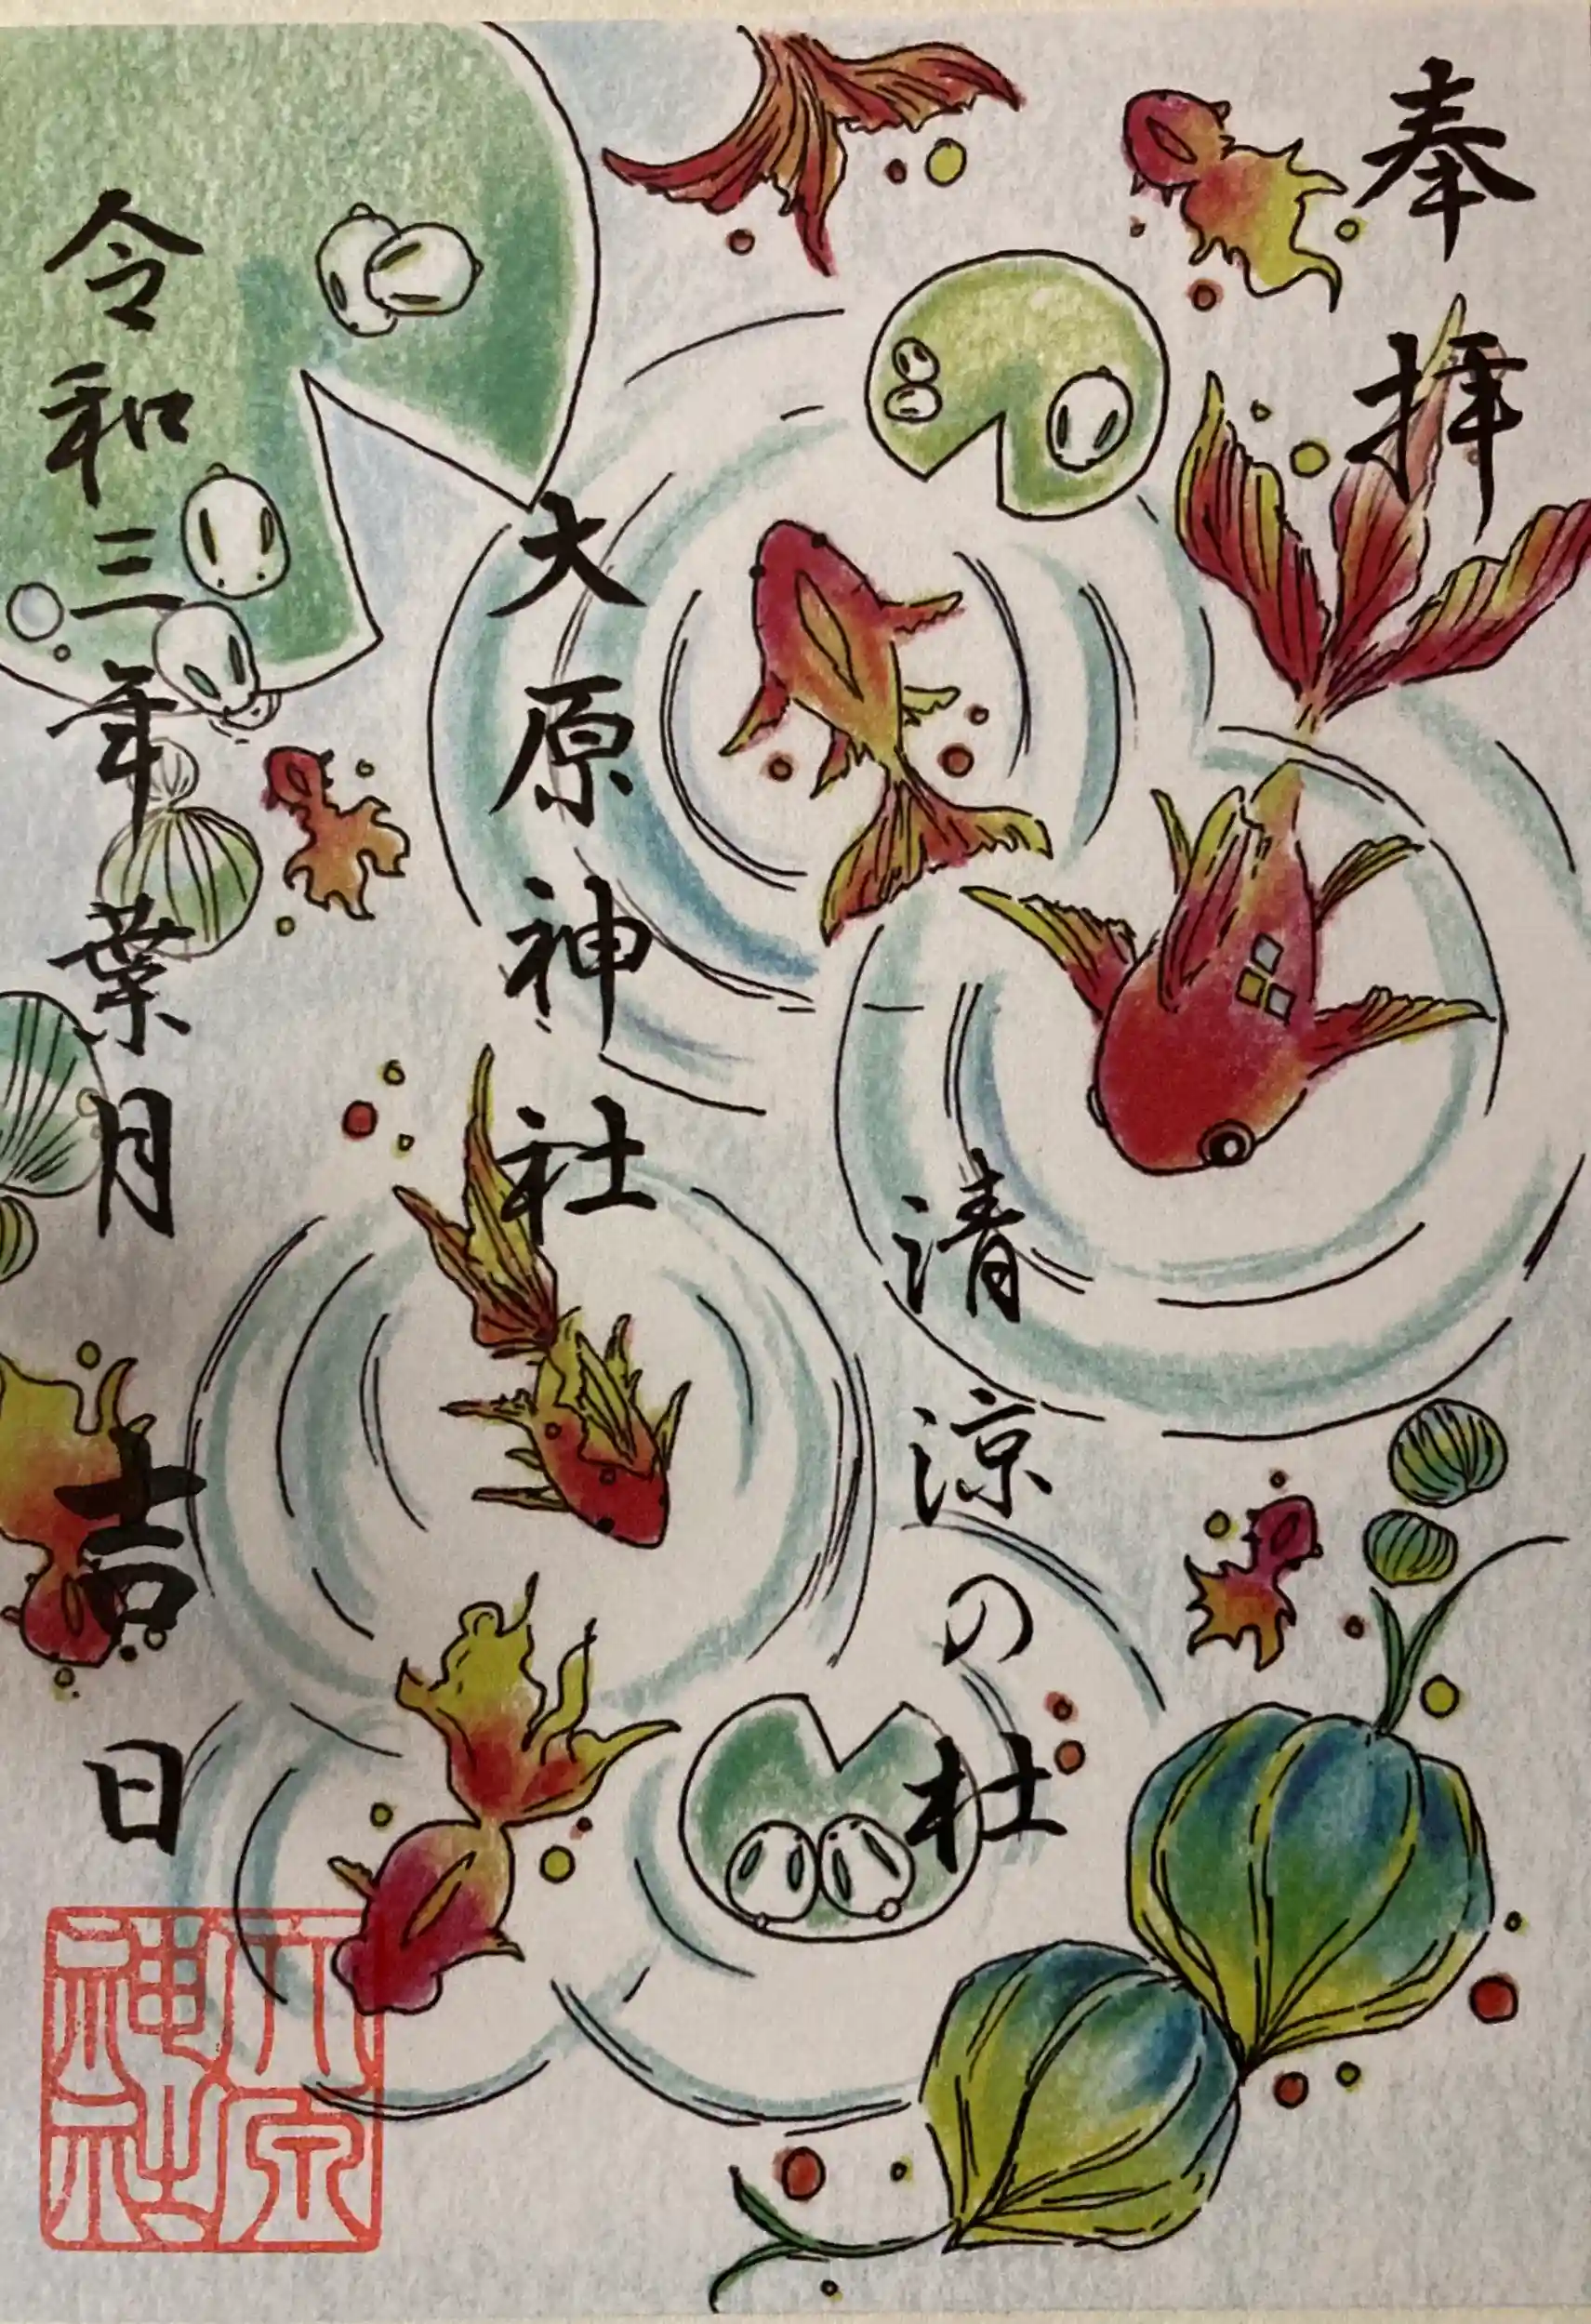 奉拝
清涼の杜
大原神社
令和三年葉月吉日
大原神社